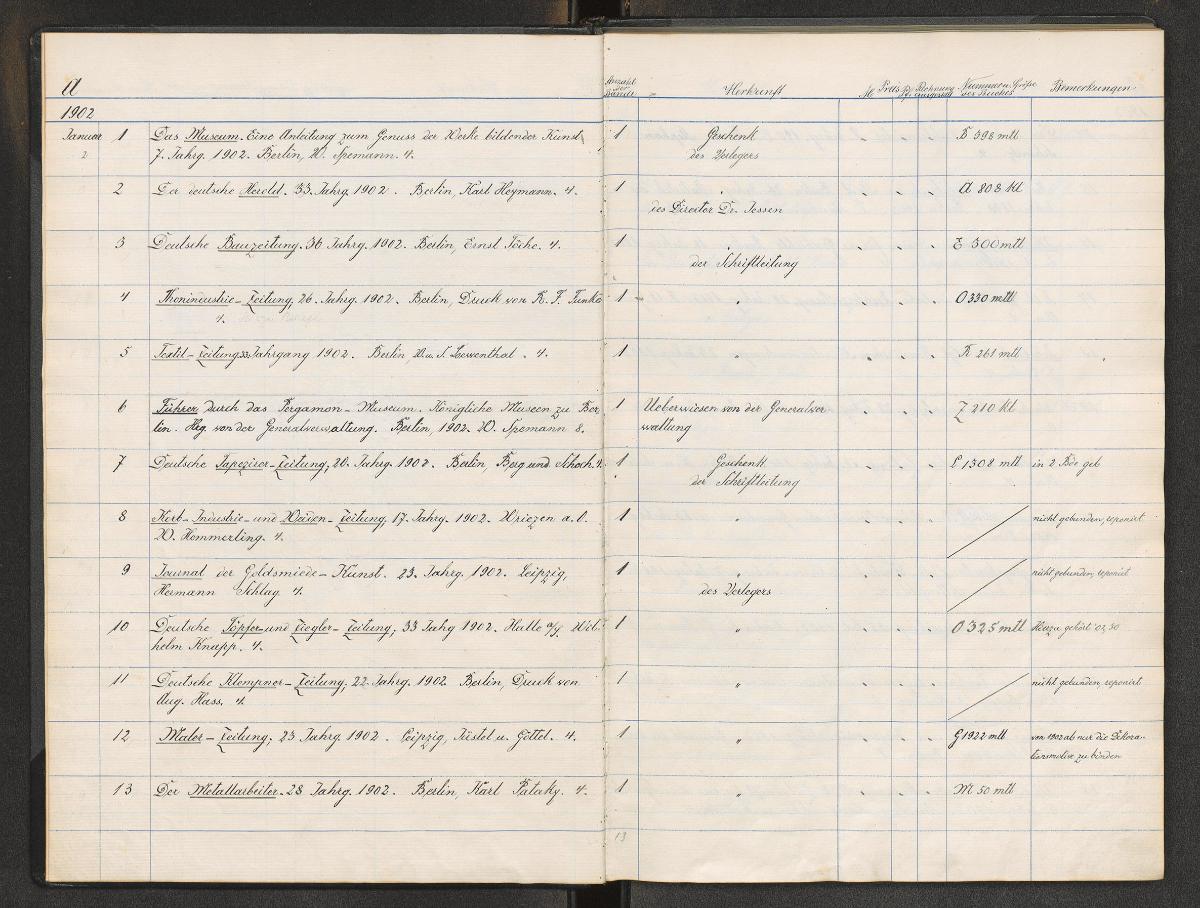 a
Anzahl der Bände Herkunft № Preis Rechnung ausgestellt Nummer u. Größe des Buches Bemerkungen
1902
Januar 1 Das Museum. Eine Anleitung zum Genuss der Werke bildender Kunst, 1 Geschenk B 398 mtl
2 7. Jahrg. 1902. Berlin, W. Spemann. 4. des Verlegers
2 Der deutsche Herold. 33. Jahrg. 1902. Berlin, Karl Heymann. 4. 1 " a 808 kl
des Direktor Dr. Jessen
3 Deutsche Bauzeitung. 36 Jahrg. 1902. Berlin, Ernst Töche. 4. 1 " E 300 mtl
der Schriftleitung
4 Thonindustrie-Zeitung, 26. Jahrg. 1902. Berlin, Druck von R. F. Funke 1 " O 330 mtl
4.
5 Textil-Zeitung. 33. Jahrgang 1902. Berlin, W. u. S. Loewenthal. 4. 1 " R 261 mtl
6 Führer durch das Pergamon-Museum. Königliche Museen zu Ber 1 Ueberwiesen von der Generalver Z 210 kl
lin. Hrg. von der Generalverwaltung. Berlin, 1902. W. Spemann 8. waltung
7 Deutsche Tapezirer-Zeitung, 20. Jahrg. 1902. Berlin, Berg und Schoch. 4. 1 Geschenk P 1508 mtl in 2 Bde geb
der Schriftleitung
8 Korb-Industrie- und Weiden-Zeitung, 17. Jahrg. 1902. Wriezen a.O. 1 " nicht gebunden, reponirt
W. Hemmerling. 4.
9 Journal der Goldsmiede-Kunst. 23. Jahrg. 1902. Leipzig, 1 " nicht gebunden, reponirt
Hermann Schlag 4. des Verlegers
10 Deutsche Töpfer- und Ziegler-Zeitung, 33 Jahrg 1902. Halle a/S. Wil 1 " O 325 mtl Hierzu gehört 02,30
helm Knapp. 4.
11 Deutsche Klempner-Zeitung, 22. Jahrg. 1902 Berlin, Druck von 1 " nicht gebunden, reponirt
Aug. Hass. 4.
12 Maler-Zeitung, 23 Jahrg. 1902. Leipzig, Jüstel u. Göttel. 4. 1 " G 1922 mtl von 1902 ab nur die Dekora-
tionsmotive zu binden
13 Der Metallarbeiter. 28 Jahrg. 1902. Berlin, Karl Pataky. 4. 1 " M 50 mtl
13